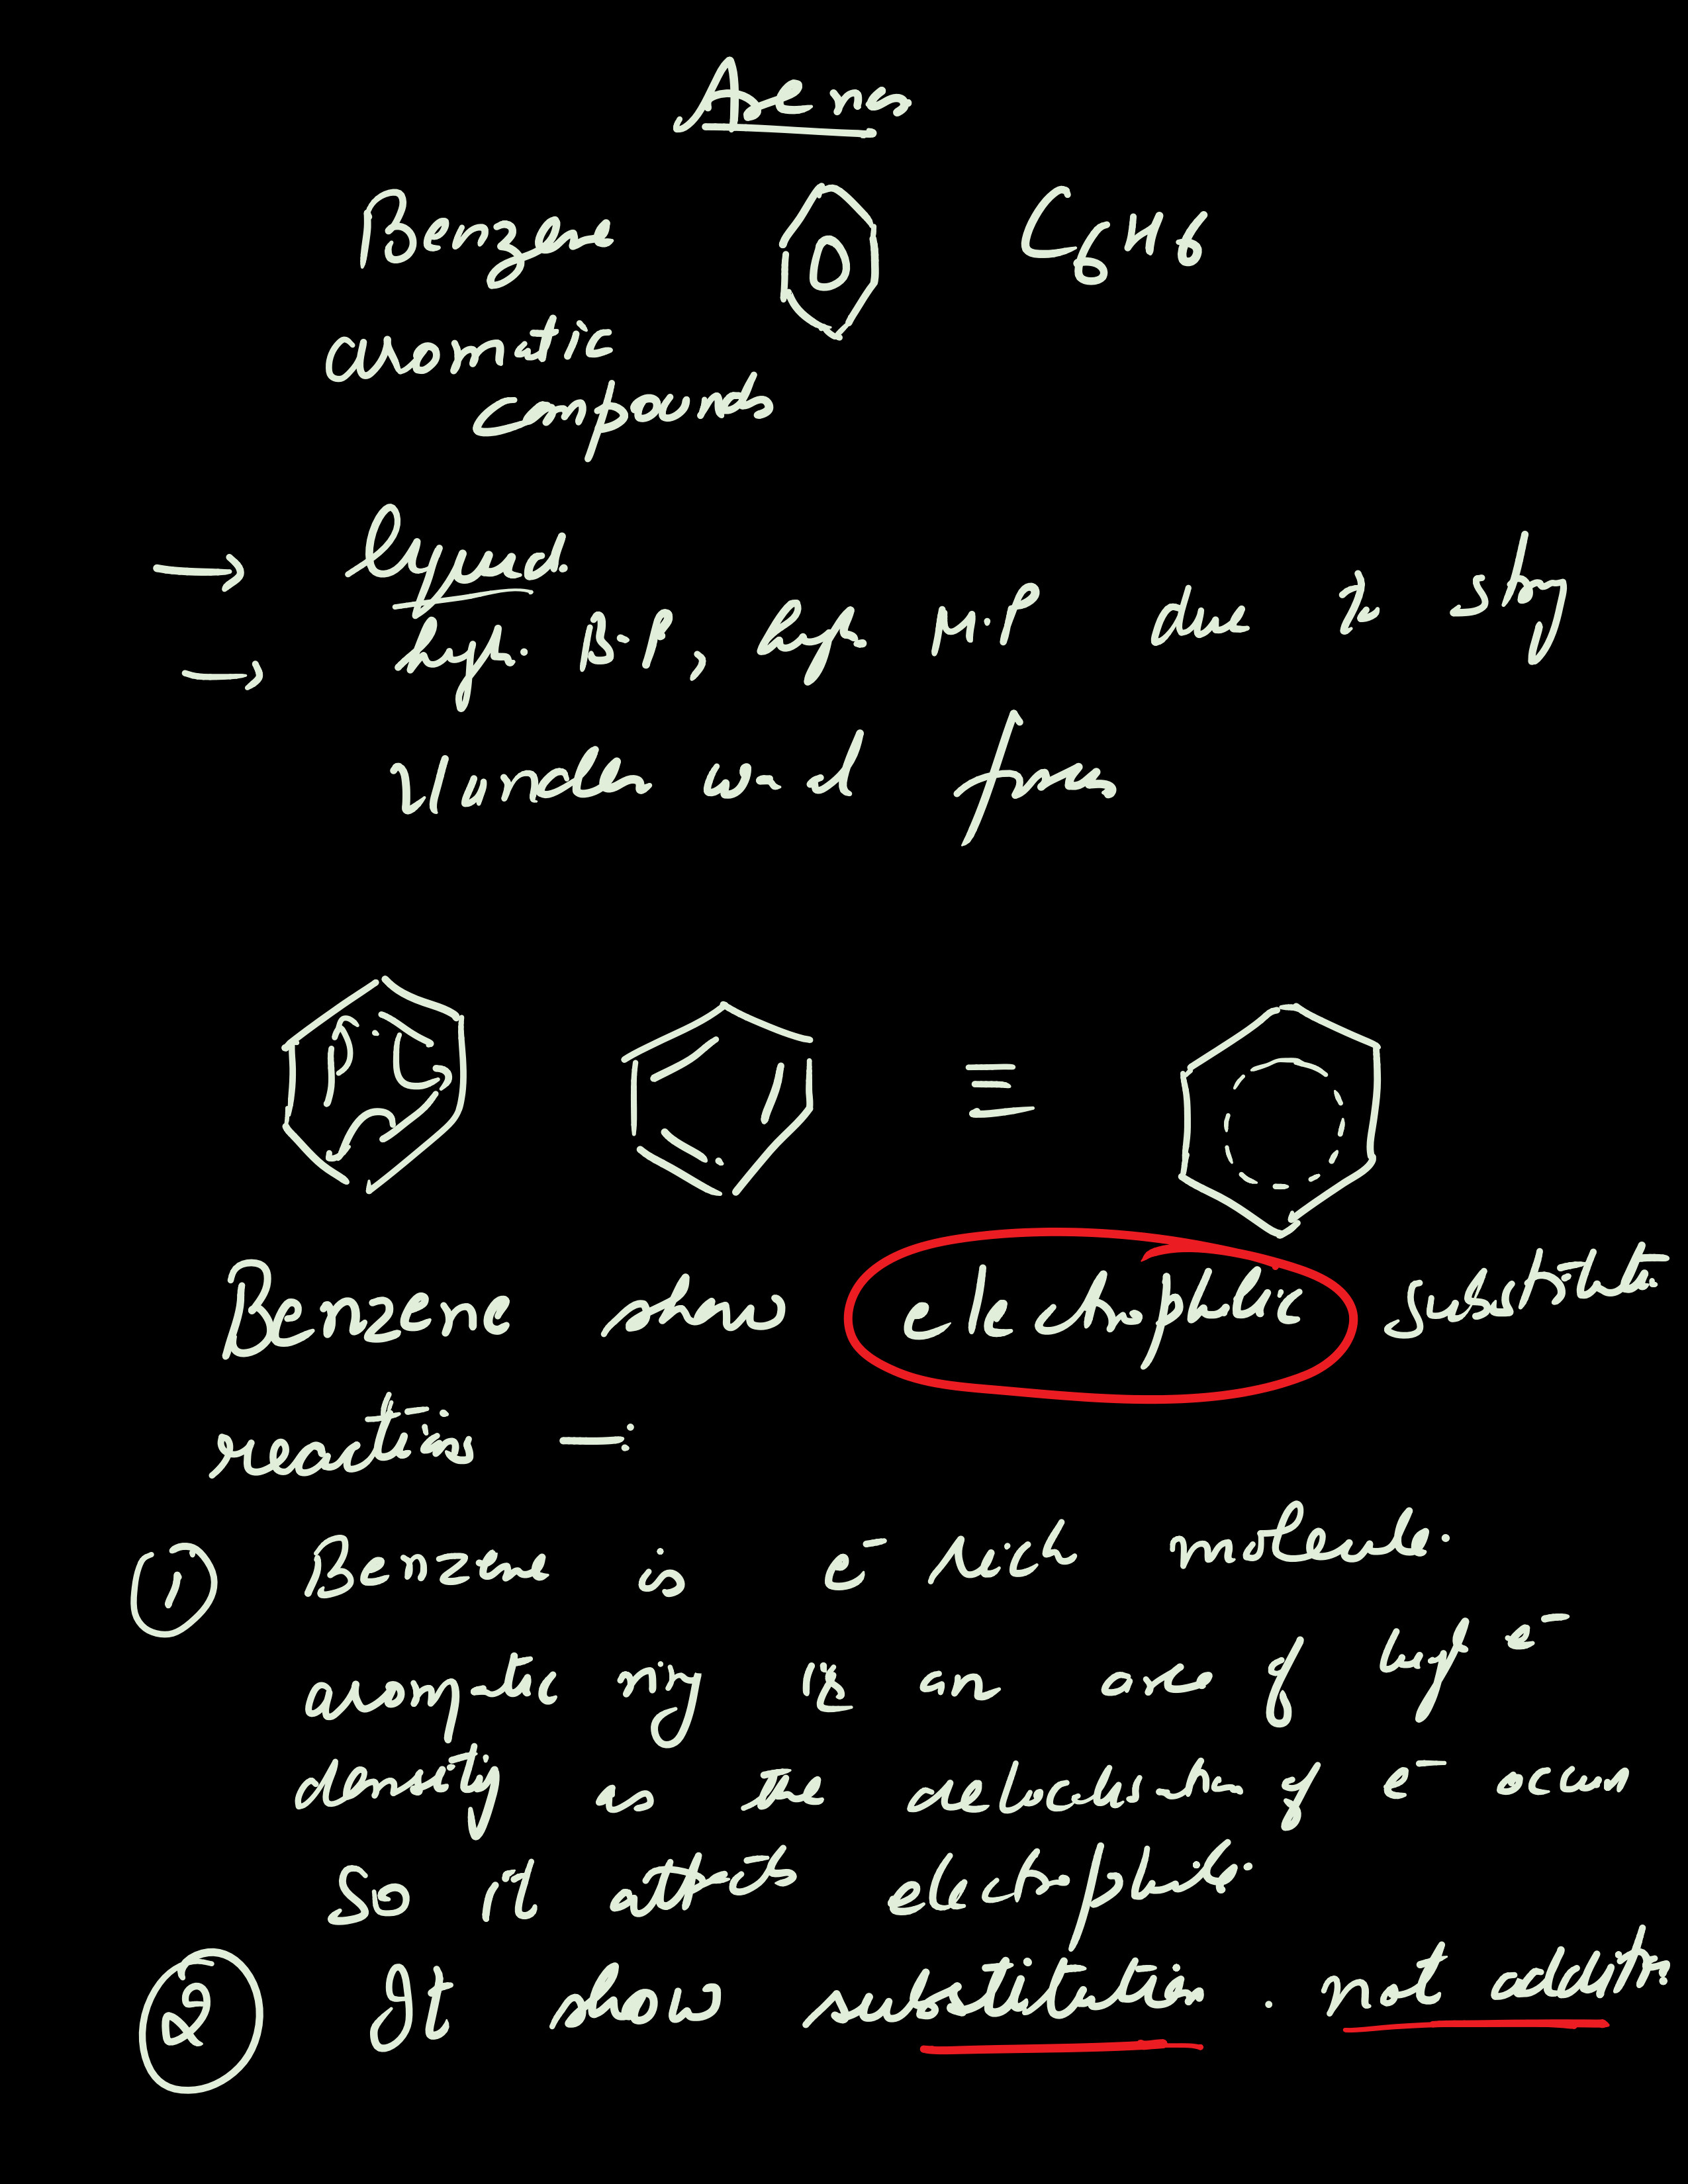 Arenes
Benzene C6H6
aromatic
compounds
→ liquid.
→ high. B.P, high M.P due to strong
Vander waal forces
≡
Benzene show electrophilic substitution
reactions —:
① Benzene is e⁻ rich molecule.
aromatic ring is an area of high e⁻
density as the delocalisation of e⁻ occurs
So it attracts electrophiles.
② It show substitution . not addition